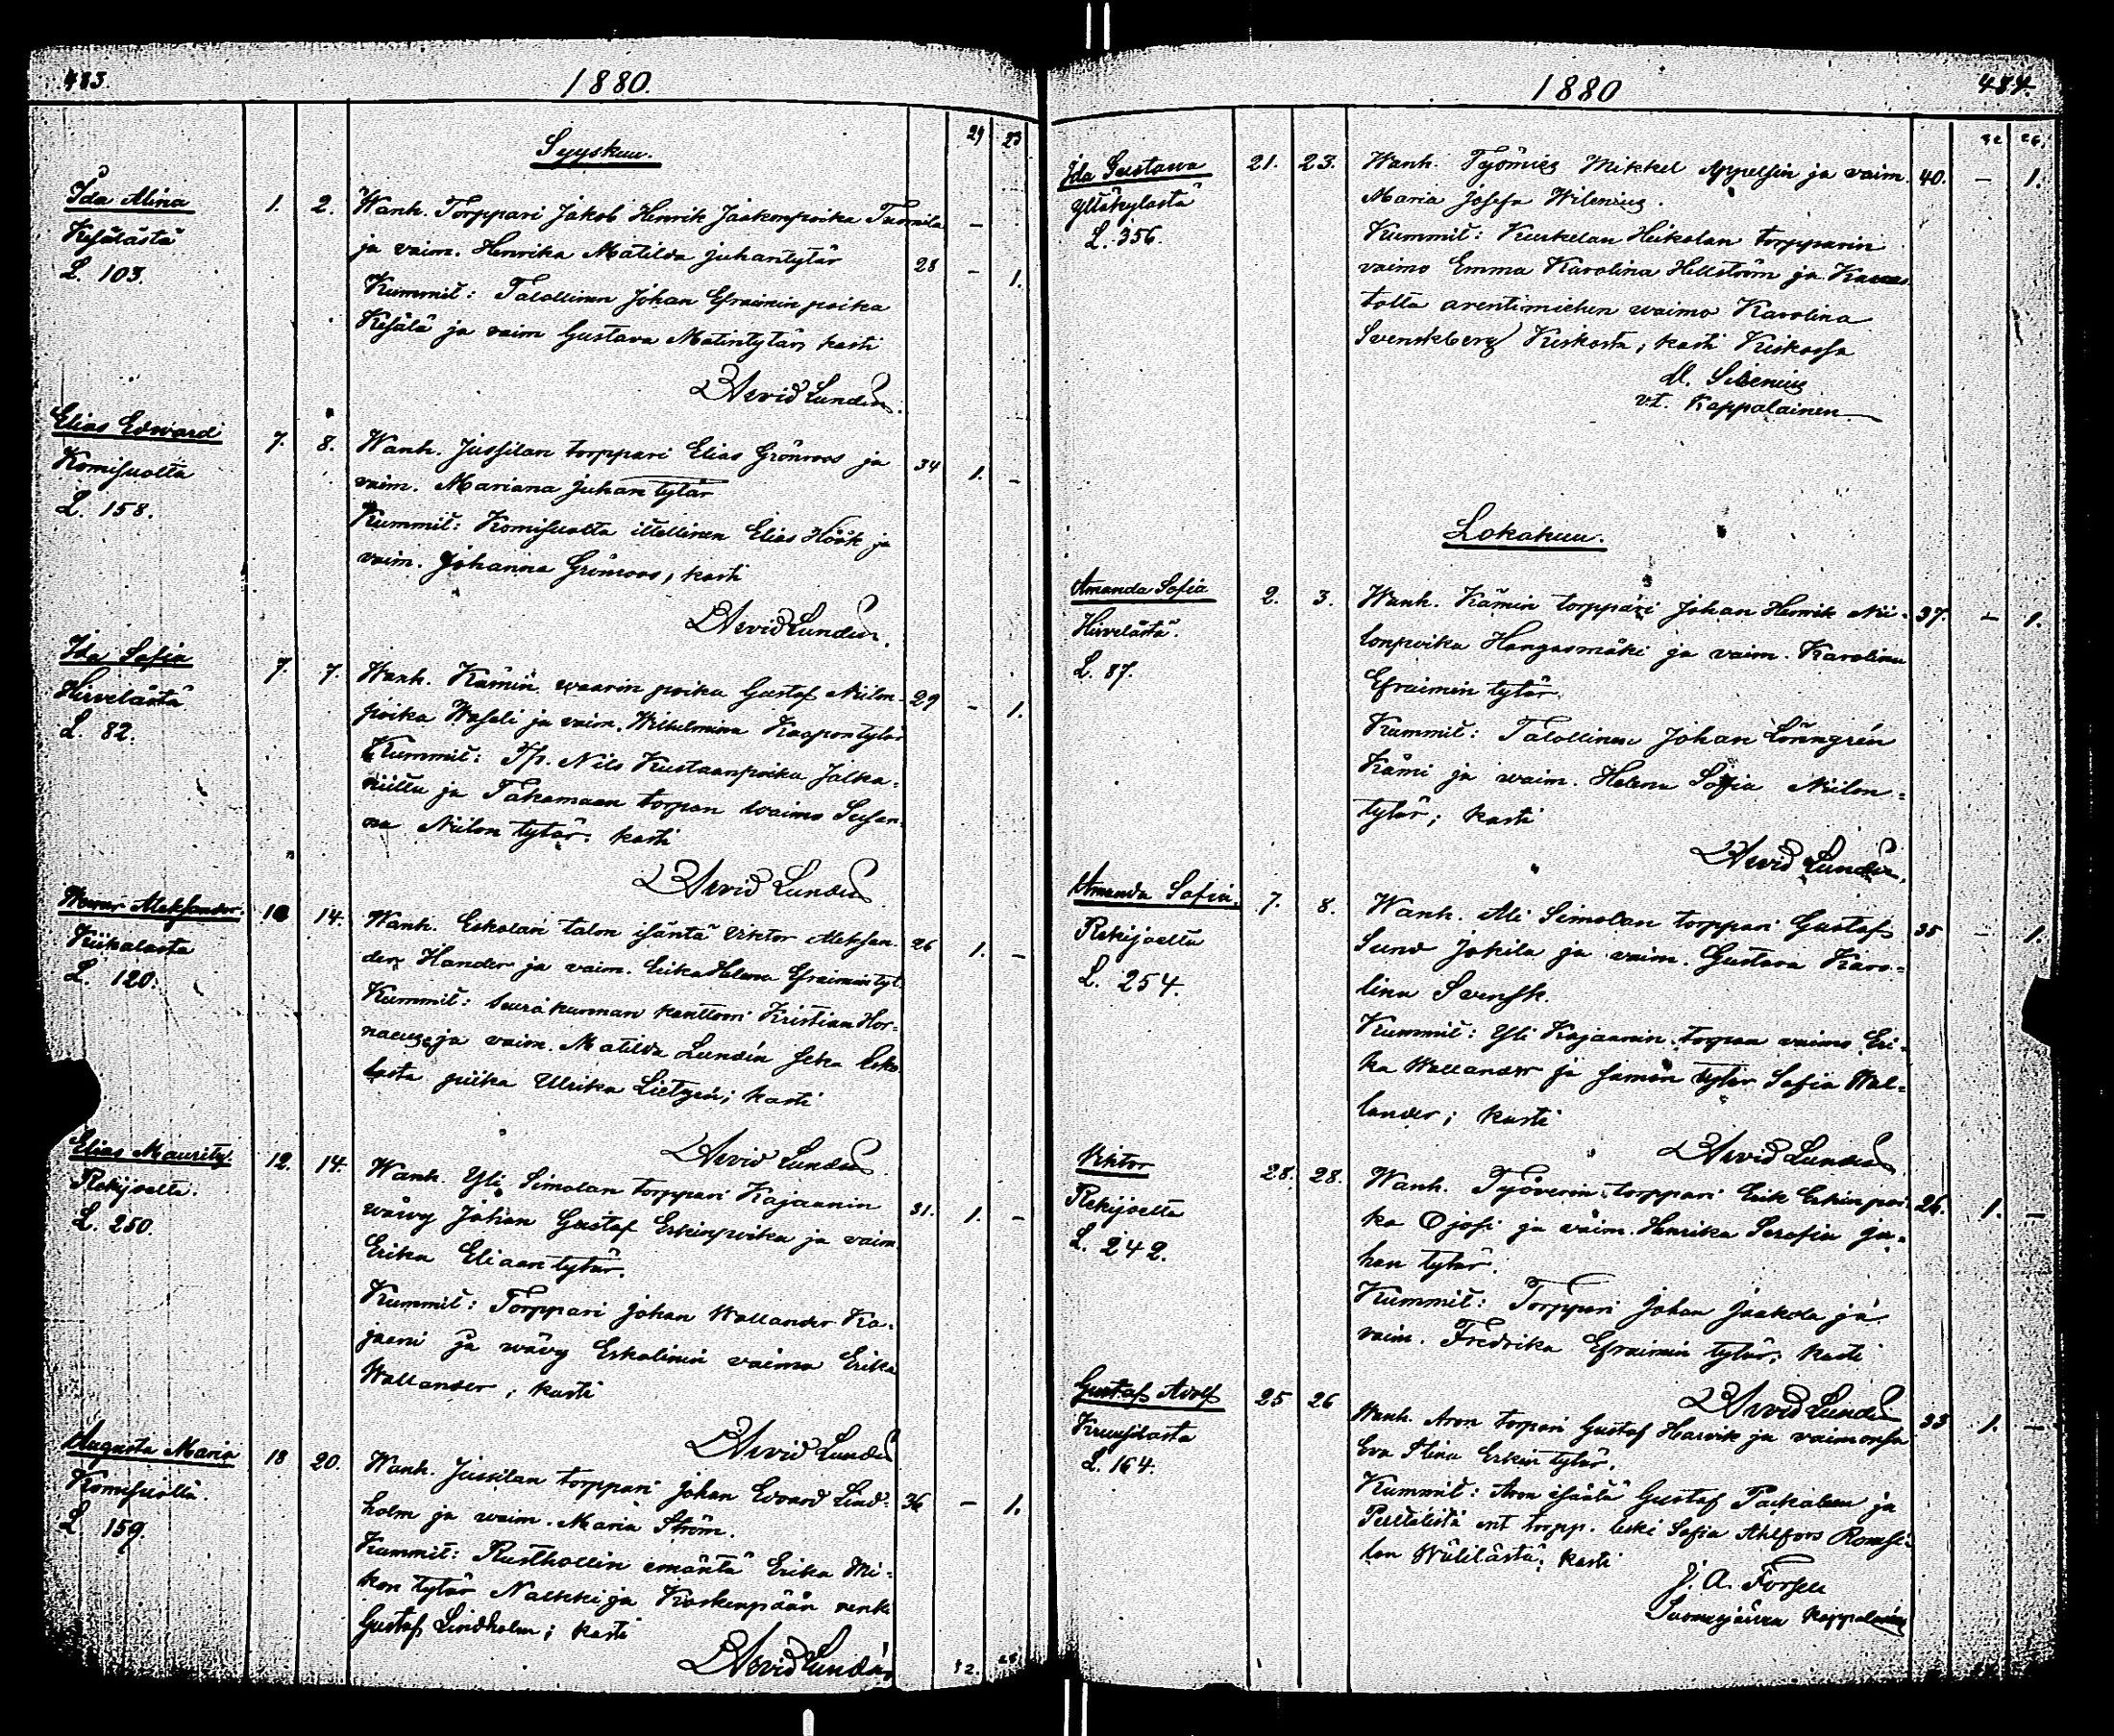 483.
1880.
Syyskuu.
29 23
Ida Alina 1. 2. Wanh. Torppari Jakob Henrik Jaakonpoika Tuomela —
Kesälästä ja vaim. Henrika Matilda Juhantytär 28 — 1.
L. 103. Kummit: Talollinen Johan Efraimin poika
Kesälä ja vaim Gustava Matintytär, kasti
Arvid Lundén.
Elias Edvard 7. 8. Wanh. Jussilan torppari Elias Grönroos ja 34 1. —
Komisuolta vaim. Mariana Juhantytär
L. 158. Kummit: Komisuolta itellinen Elias Höök ja
vaim. Johanna Grönroos, kasti
Arvid Lundén.
Ida Sofia 7. 7. Wanh. Kämin waarin poika Gustaf Niilon- 29 — 1.
Hirvelästä poika Waseli ja vaim. Wilhelmina Kaapontytär
L. 82. Kummit: Nils Kustaanpoika Jalka-
niittu ja Takamaan torpan waimo Susan-
na Niilon tytär: kasti
Arvid Lundén
Aleksander. 14. Wanh. Eskolan talon isäntä Viktor Aleksan- 26 1. —
Kiikalasta der Hander ja vaim. Erika Helena Efraimintyt.
L. 120. Kummit: Seurakunnan kanttoori Kristian Hor-
naeus ja vaim. Matilda Lundén sekä Esko-
lasta piika Ulrika Lietzén; kasti
Arvid Lundén
Elias Mauritz. 12. 14. Wanh. Yli Simolan torppari Kajaanin 31. 1. —
Rekijoelta. wävy Johan Gustaf Erkinpoika ja vaim.
L. 250. Erika Eliaantytär.
Kummit: Torppari Johan Wallander Ka-
jaani ja wävy Eskolinin vaimo Erika
Wallander, kasti
Arvid Lundén
Augusta Maria 18 20. Wanh. Jussilan torppari Johan Edvard Lind- 36 — 1.
Komisuolta. holm ja vaim. Maria Ström.
L 159. Kummit: Rusthollin emäntä Erika Mi-
kon tytär Nalkki ja Koskenpään renki
Gustaf Lindholm; kasti
Arvid Lundén
1880
484.
32 26.
Ida Gustava 21. 23. Wanh. Työmies Mikkel Appelsin ja vaim. 40. — 1.
Yltäkylästä Maria Josefa Wilenius.
L. 356. Kummit: Kurkelan Heikolan torpparin
vaimo Emma Karolina Hellström ja
tolta arentimiehen waimo Karolina
Svenskberg Kiskosta, kasti Kiskossa
M. Silenius
v.t. Kappalainen
Lokakuu.
Amanda Sofia 2. 3. Wanh. Kämin torppari Johan Henrik Nii- 37. — 1.
Hirvelästä. lonpoika Hangasmäki ja vaim. Karolina
L. 87. Efraimin tytär.
Kummit: Talollinen Johan Lönngrén
Kämi ja waim. Helena Sofia Niilon-
tytär; kasti
Arvid Lundén.
Amanda Sofia. 7. 8. Wanh. Ali Simolan torppari Gustaf 35 — 1.
Rekijoelta Sund Jokila ja vaim. Gustava Karo-
L. 254. lina Svensk.
Kummit: Yli Kajaanin torpan vaimo Eri-
ka Wallander ja saman tytär Sofia Wal-
lander; kasti
Arvid Lundén
Viktor 28. 28. Wanh. Työverin torppari Erik Erkinpoi- 26. 1. —
Rekijoelta ka Ojosi ja vaim. Henrika Serafia Ju-
L. 242. han tytär.
Kummit: Torppari Johan Jaakola ja
vaim. Fredrika Efraimin tytär; kasti
Arvid Lundén
Gustaf Adolf 25 26 Wanh. Aron torpari Gustaf Harvik ja vaimonsa 33 1. —
Kruusilasta Eva Stina Erkin tytär.
L. 164. Kummit: Aron isäntä Gustaf Packalen ja
ent torpp. leski Sofia Ahlfors
kasti
J. A. Forsell
Suomusjärven Kappalainen